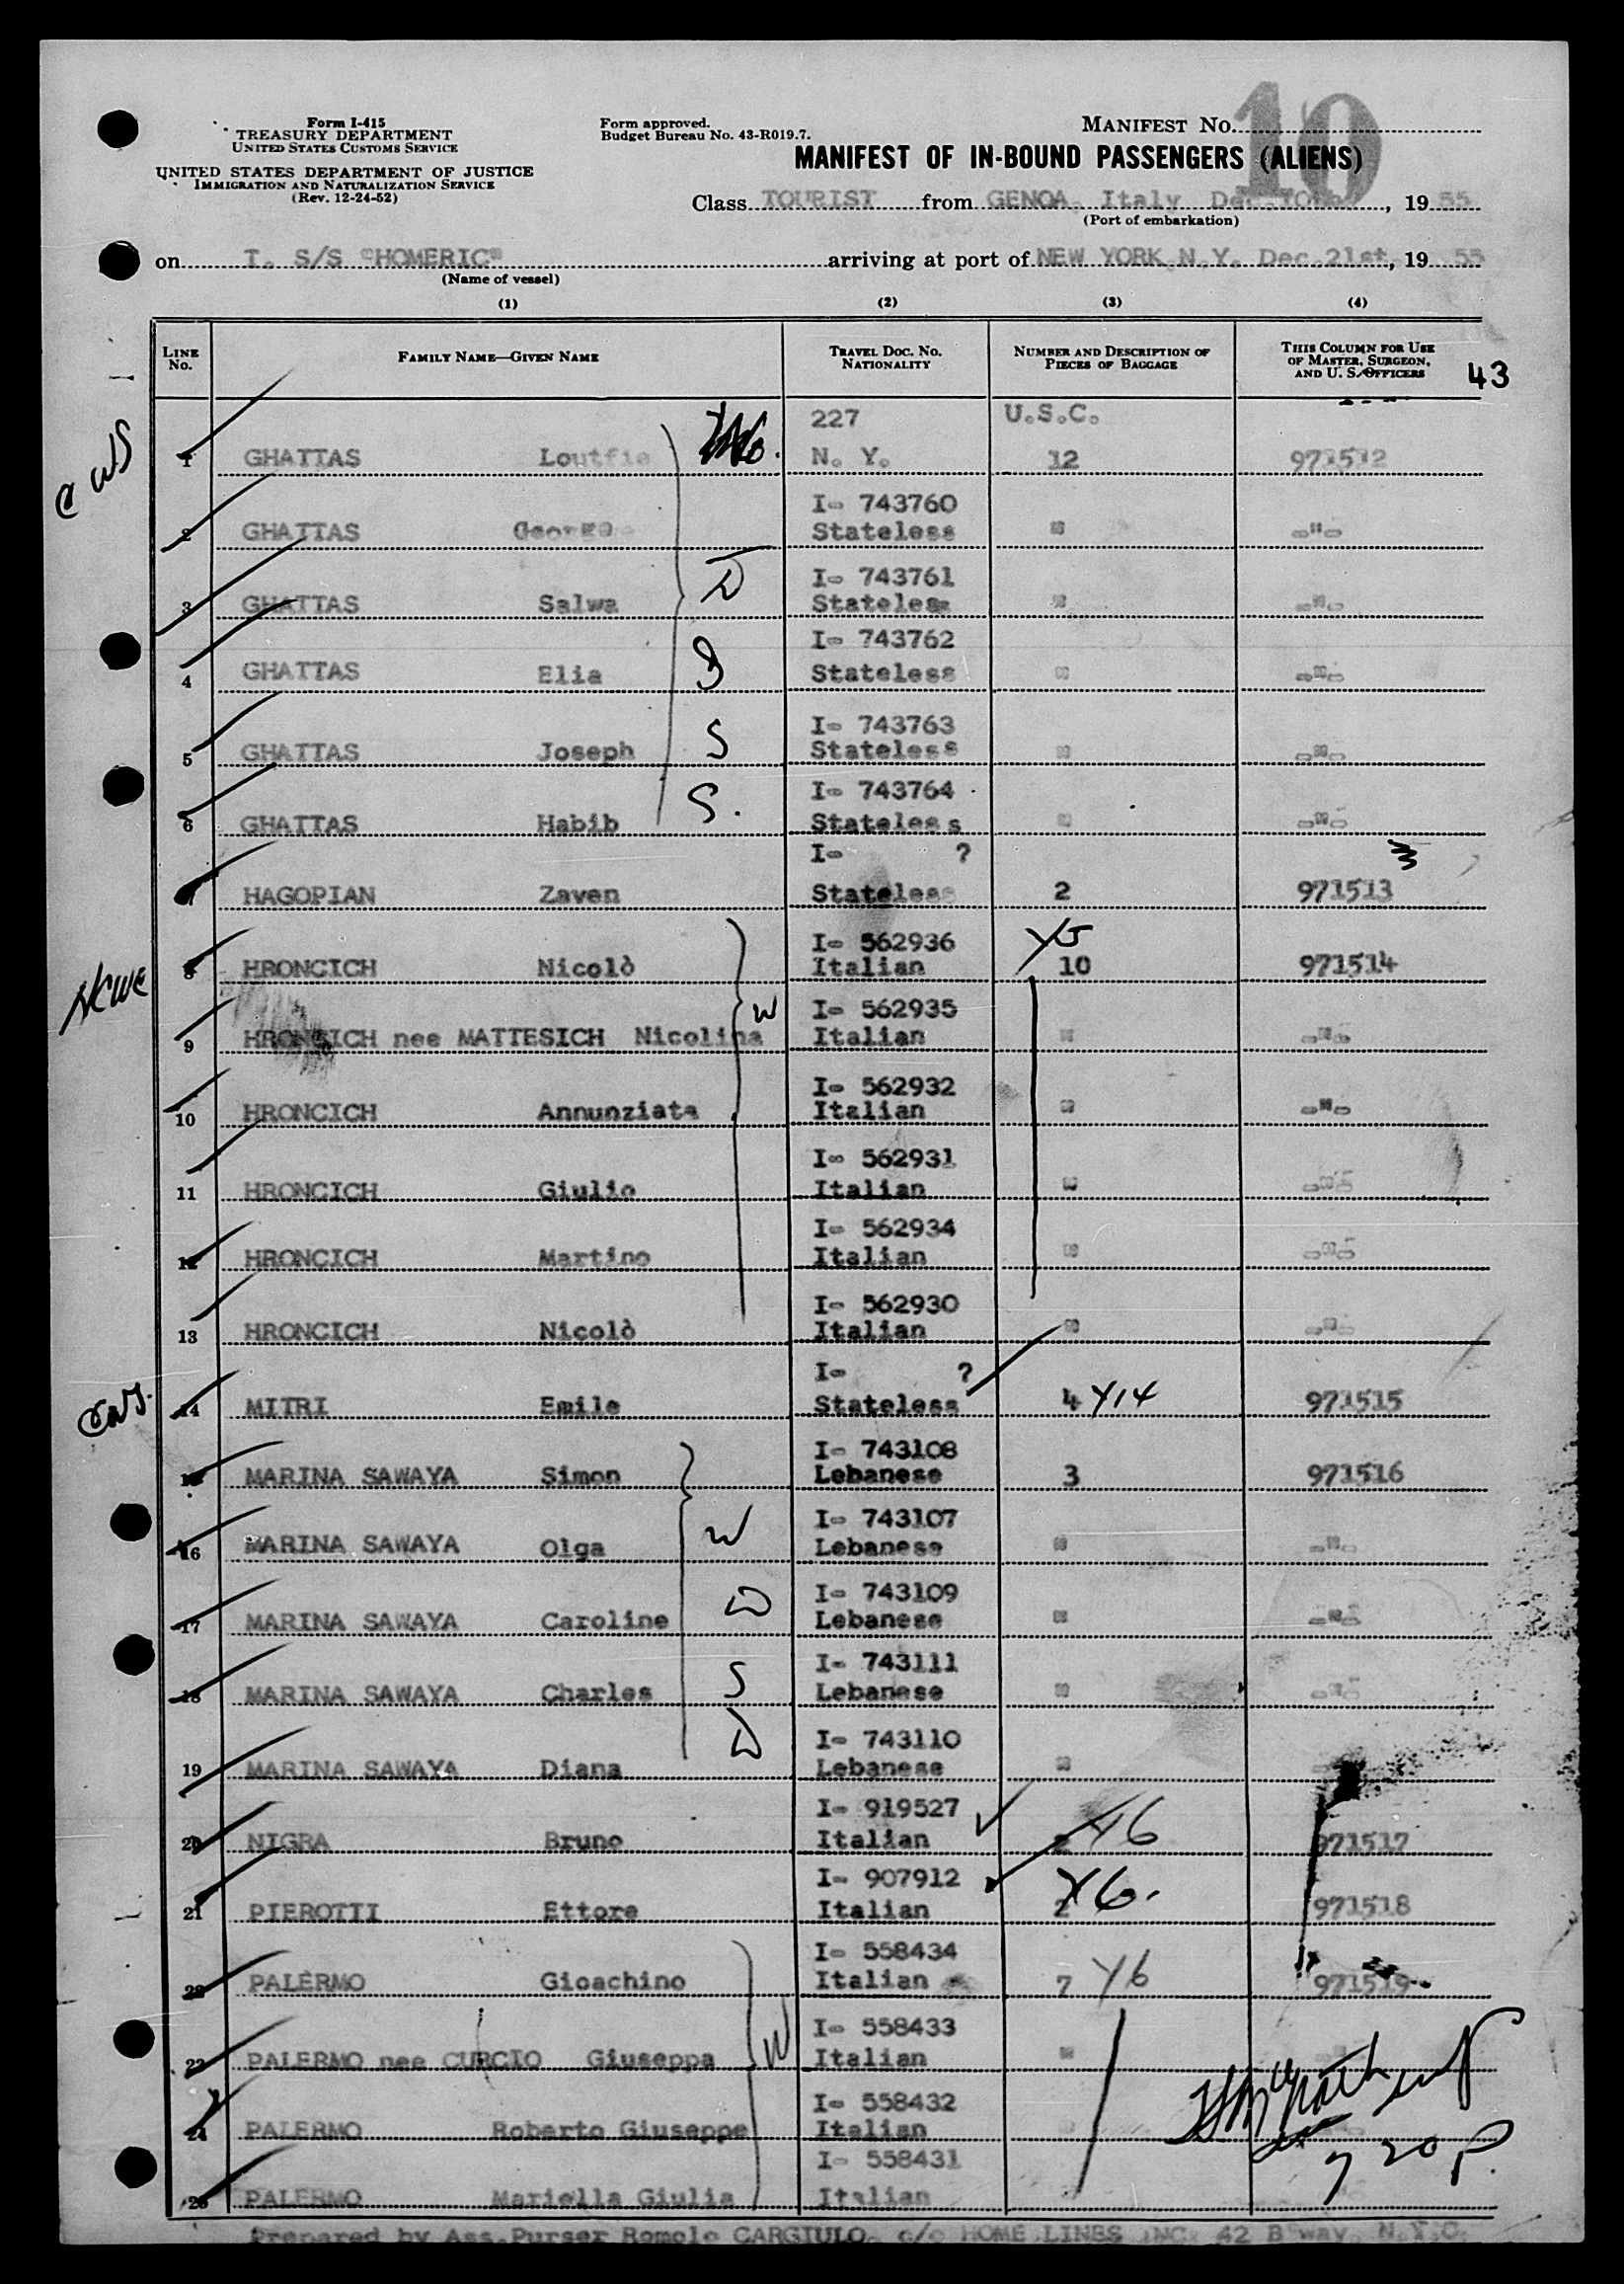 Form I-415
TREASURY DEPARTMENT
UNITED STATES CUSTOMS SERVICE
UNITED STATES DEPARTMENT OF JUSTICE
IMMIGRATION AND NATURALIZATION SERVICE
(Rev. 12-24-52)
Form approved.
Budget Bureau No. 43-R019.7.
MANIFEST No.
10
MANIFEST OF IN-BOUND PASSENGERS (ALIENS)
Class TOURIST from GENOA, Italy Dec. , 19 55
(Port of embarkation)
on T. S/S "HOMERIC" arriving at port of NEW YORK N.Y. Dec. 21st, 19 55
(Name of vessel)
(1) (2) (3) (4)
LINE No. FAMILY NAME—GIVEN NAME TRAVEL DOC. No. NATIONALITY NUMBER AND DESCRIPTION OF PIECES OF BAGGAGE THIS COLUMN FOR USE OF MASTER, SURGEON, AND U. S. OFFICERS 43
227 U.S.C.
1 GHATTAS Loutfie N. Y. 12 971512
I- 743760
2 GHATTAS George Stateless " -"-
I- 743761
3 GHATTAS Salwa D Stateless " -"-
I- 743762
4 GHATTAS Elia Stateless " -"-
I- 743763
5 GHATTAS Joseph S Stateless " -"-
I- 743764
6 GHATTAS Habib S. Stateless " -"-
I- ?
7 HAGOPIAN Zaven Stateless 2 971513
I- 562936
8 HRONCICH Nicolò Italian 10 971514
I- 562935
9 HRONCICH nee MATTESICH Nicolina W Italian " -"-
I- 562932
10 HRONCICH Annunziata Italian " -"-
I- 562931
11 HRONCICH Giulio Italian " -"-
I- 562934
12 HRONCICH Martino Italian " -"-
I- 562930
13 HRONCICH Nicolò Italian " -"-
I- ?
14 MITRI Emile Stateless 4 Y14 971515
I- 743108
15 MARINA SAWAYA Simon Lebanese 3 971516
I- 743107
16 MARINA SAWAYA Olga W Lebanese " -"-
I- 743109
17 MARINA SAWAYA Caroline D Lebanese " -"-
I- 743111
18 MARINA SAWAYA Charles S Lebanese " -"-
I- 743110
19 MARINA SAWAYA Diana D Lebanese "
I- 919527
20 NIGRA Bruno Italian 2 Y6 971517
I- 907912
21 PIEROTTI Ettore Italian 2 Y6. 971518
I- 558434
22 PALERMO Gioachino Italian 7 Y6 971519
I- 558433
23 PALERMO nee CURCIO Giuseppa W Italian "
I- 558432
24 PALERMO Roberto Giuseppe Italian
I- 558431
25 PALERMO Mariella Giulia Italian
7 20 P.
Prepared by Ass.Purser Romolo CARGIULO c/o HOME LINES INC. 42 B'way, N.Y.C.